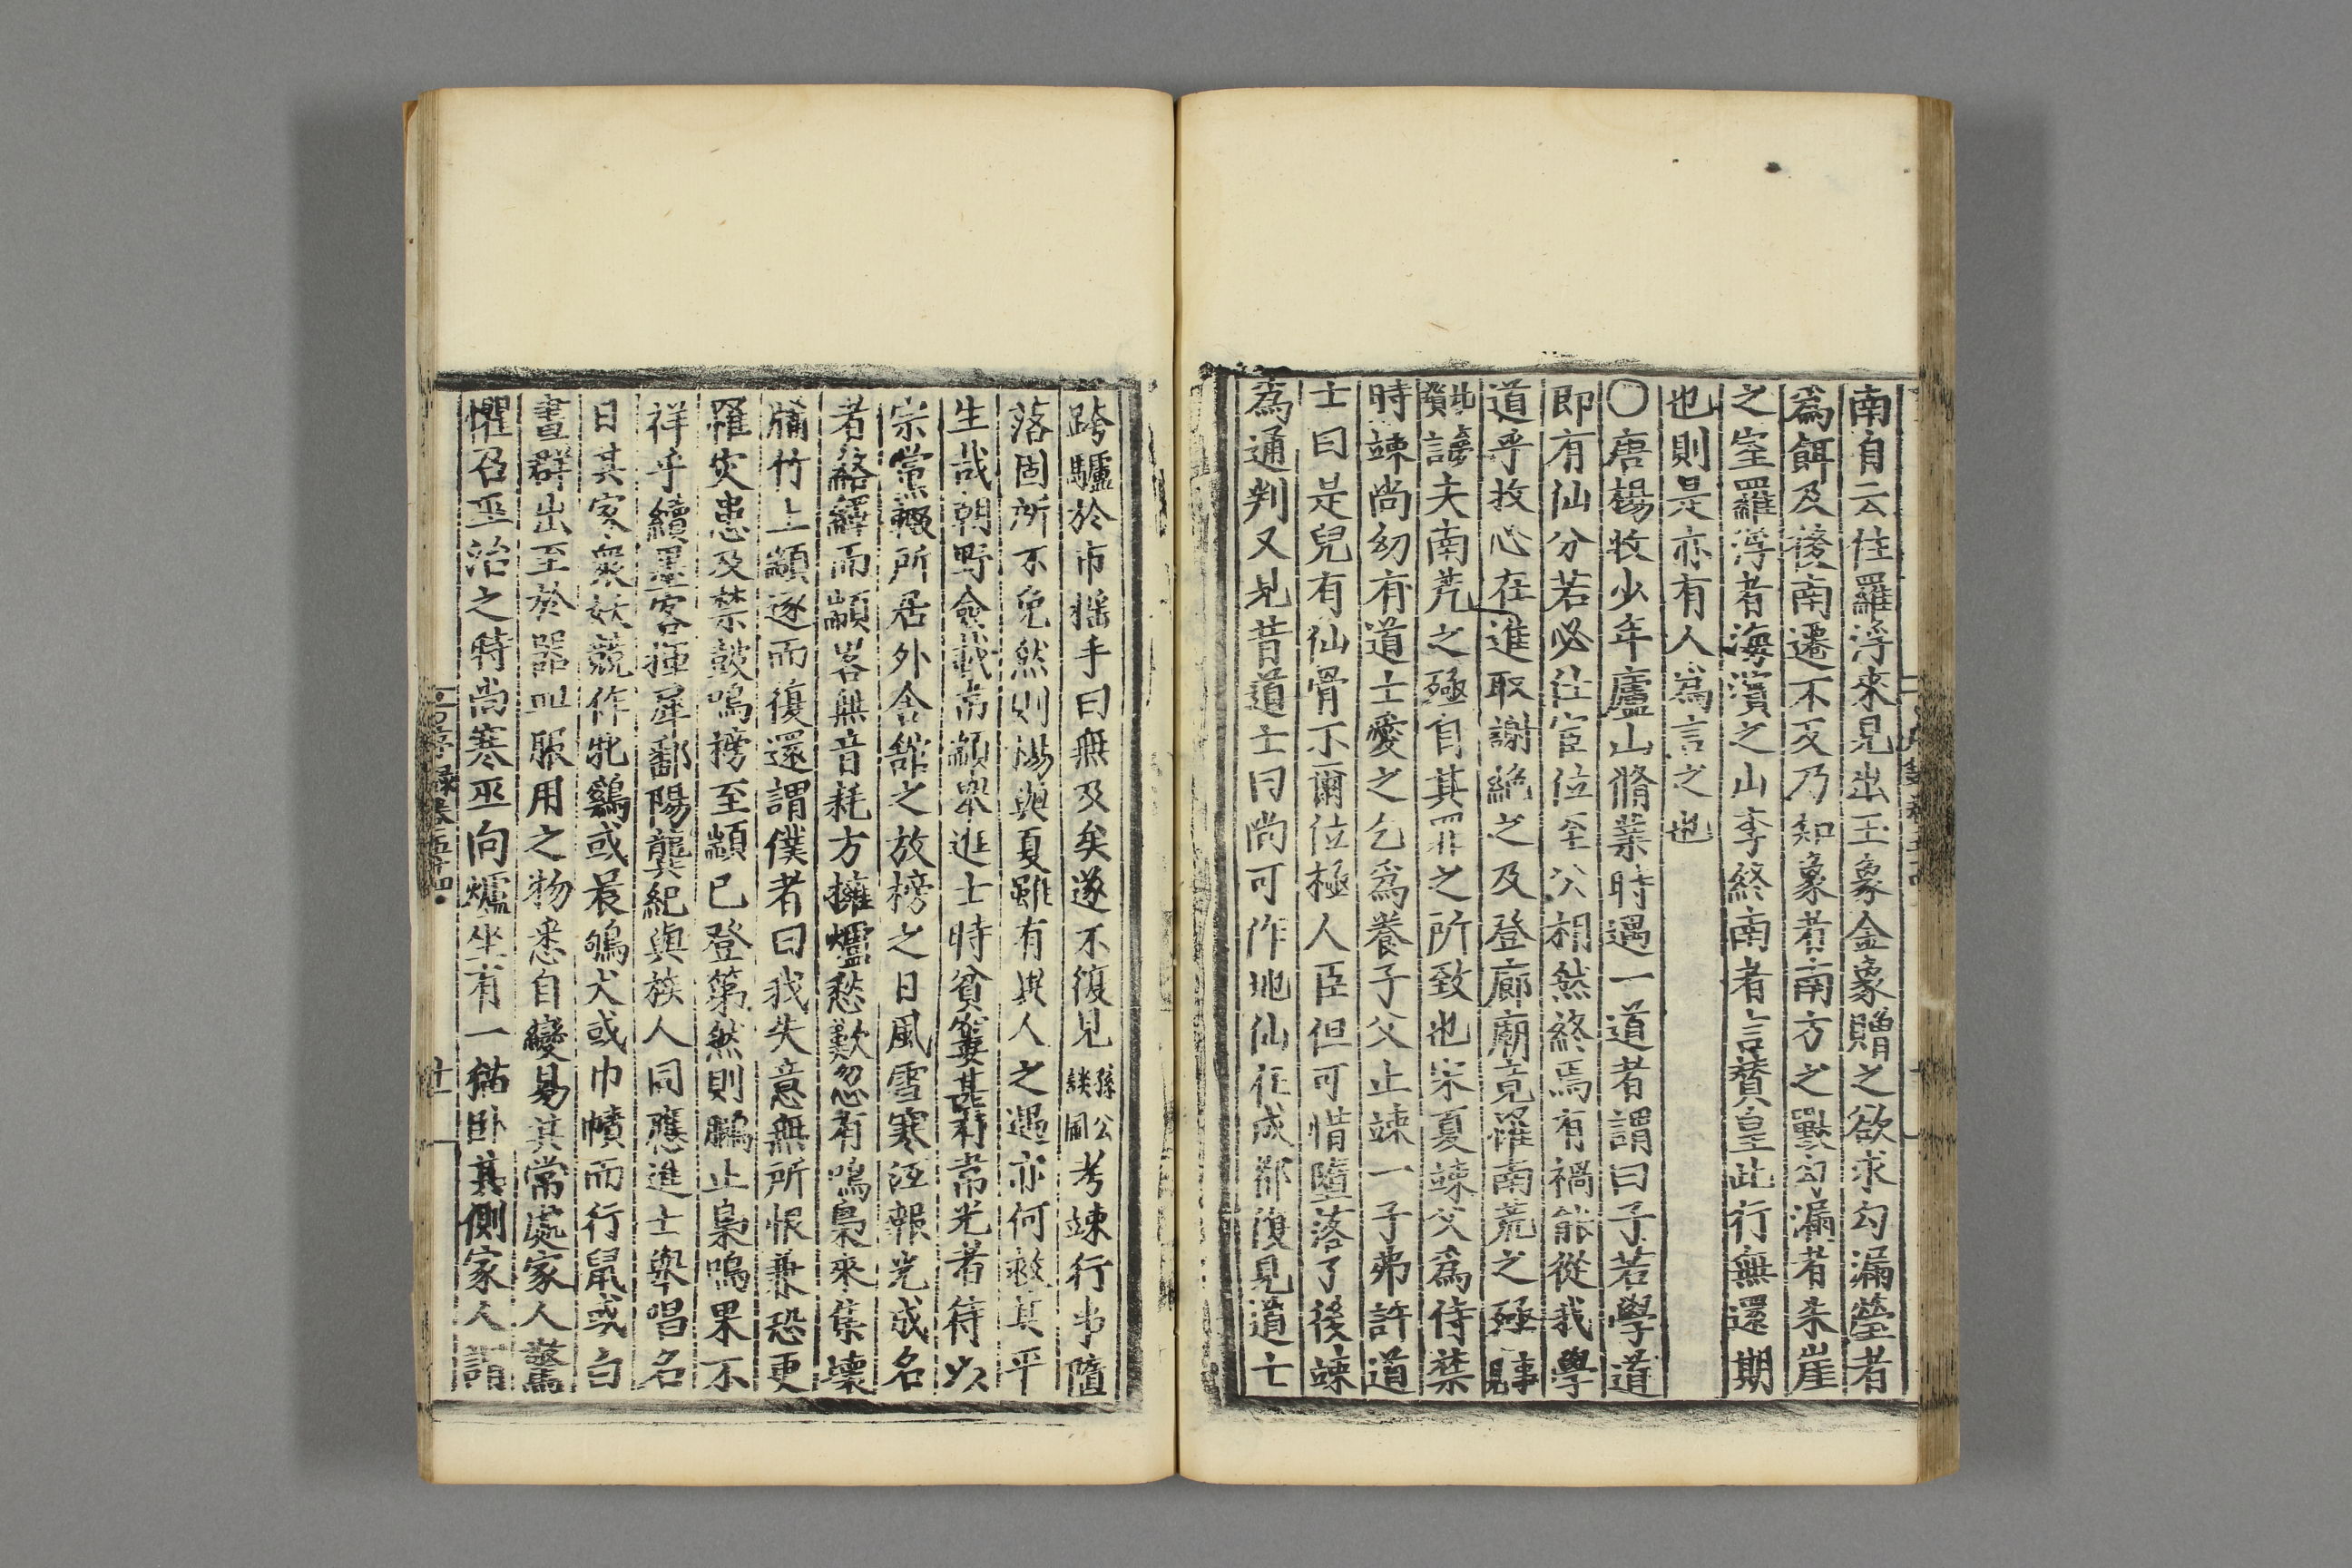 南自云住羅浮來見出玉象金象贈之欲求勾漏瑩者
爲餌及後南遷不反乃知象者南方之獸勾漏者朱崖
之室羅浮者海濱之山李終南者言賛皇此行無還期
也則是亦有人爲言之也
〇唐楊收少年廬山脩業時遇一道者謂曰子若學道
即有仙分若必仕宦位至公相然終焉有禍能從我學
道乎收心在進取謝絶之及登廊廟竟罹南荒之殛事見
北夢瑣 謗夫南荒之殛自其罪之所致也宋夏竦父爲侍禁
時竦尚幼有道士愛之乞爲養子父止竦一子弗許道
士曰是兒有仙骨不爾位極人臣但可惜墮落了後竦
爲通判又見昔道士曰尚可作地仙在成都復見道士
跨驢於市揺手曰無及矣遂不復見孫公談圃考竦行事隨
落固所不免然則楊與夏雖有異人之遇亦何救其平
生哉朝野僉載常顓舉進士時貧窶甚有常光者待以
宗黨輟所居外舍舘之放榜之日風雪寒沍報光成名
者絡繹而顓畧無音耗方擁爐愁歎忽有鳴梟來集壞
牖竹上顓逐而復還謂僕者曰我失意無所恨兼恐更
罹灾患及禁鼓鳴榜至顓已登第然則鵩止梟鳴果不
祥乎續墨客揮犀鄱陽龔紀與族人同應進士舉唱名
日其家衆妖競作牝鷄或晨鳴犬或巾幘而行鼠或白
晝群出至於器皿服用之物悉自變易其常處家人驚
懼召巫治之時尚寒巫向爐坐有一猫卧其側家人謂